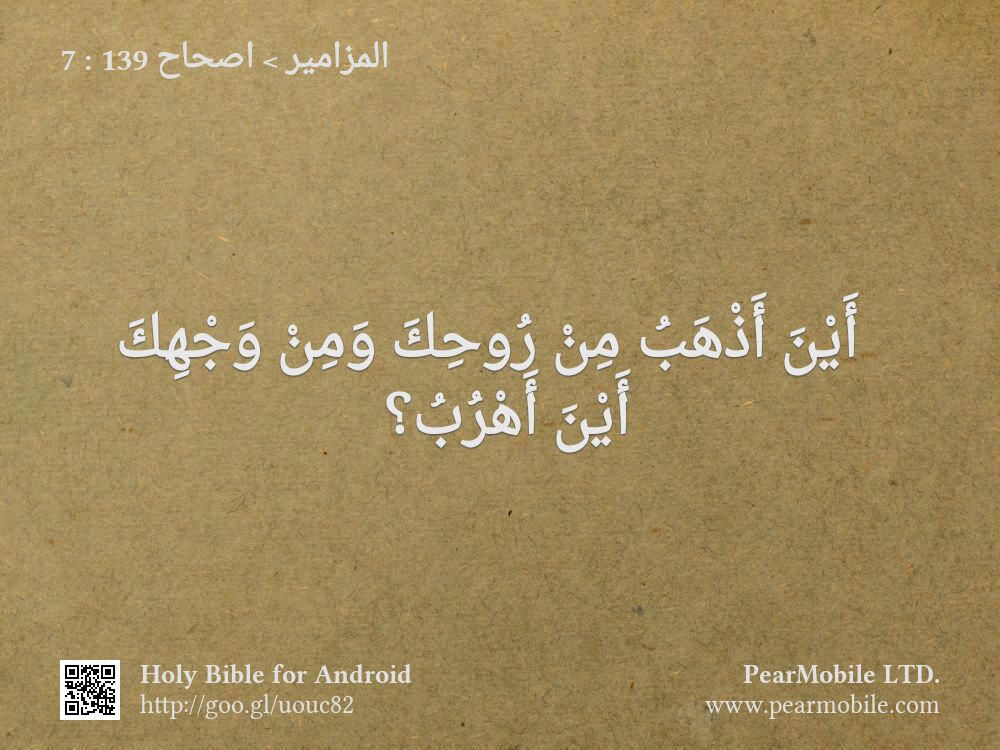 المزامير > اصحاح 139 : 7
أَيْنَ أَذْهَبُ مِنْ رُوحِكَ وَمِنْ وَجْهِكَ
أَيْنَ أَهْرُبُ؟
Holy Bible for Android
http://goo.gl/uouc82
PearMobile LTD.
www.pearmobile.com